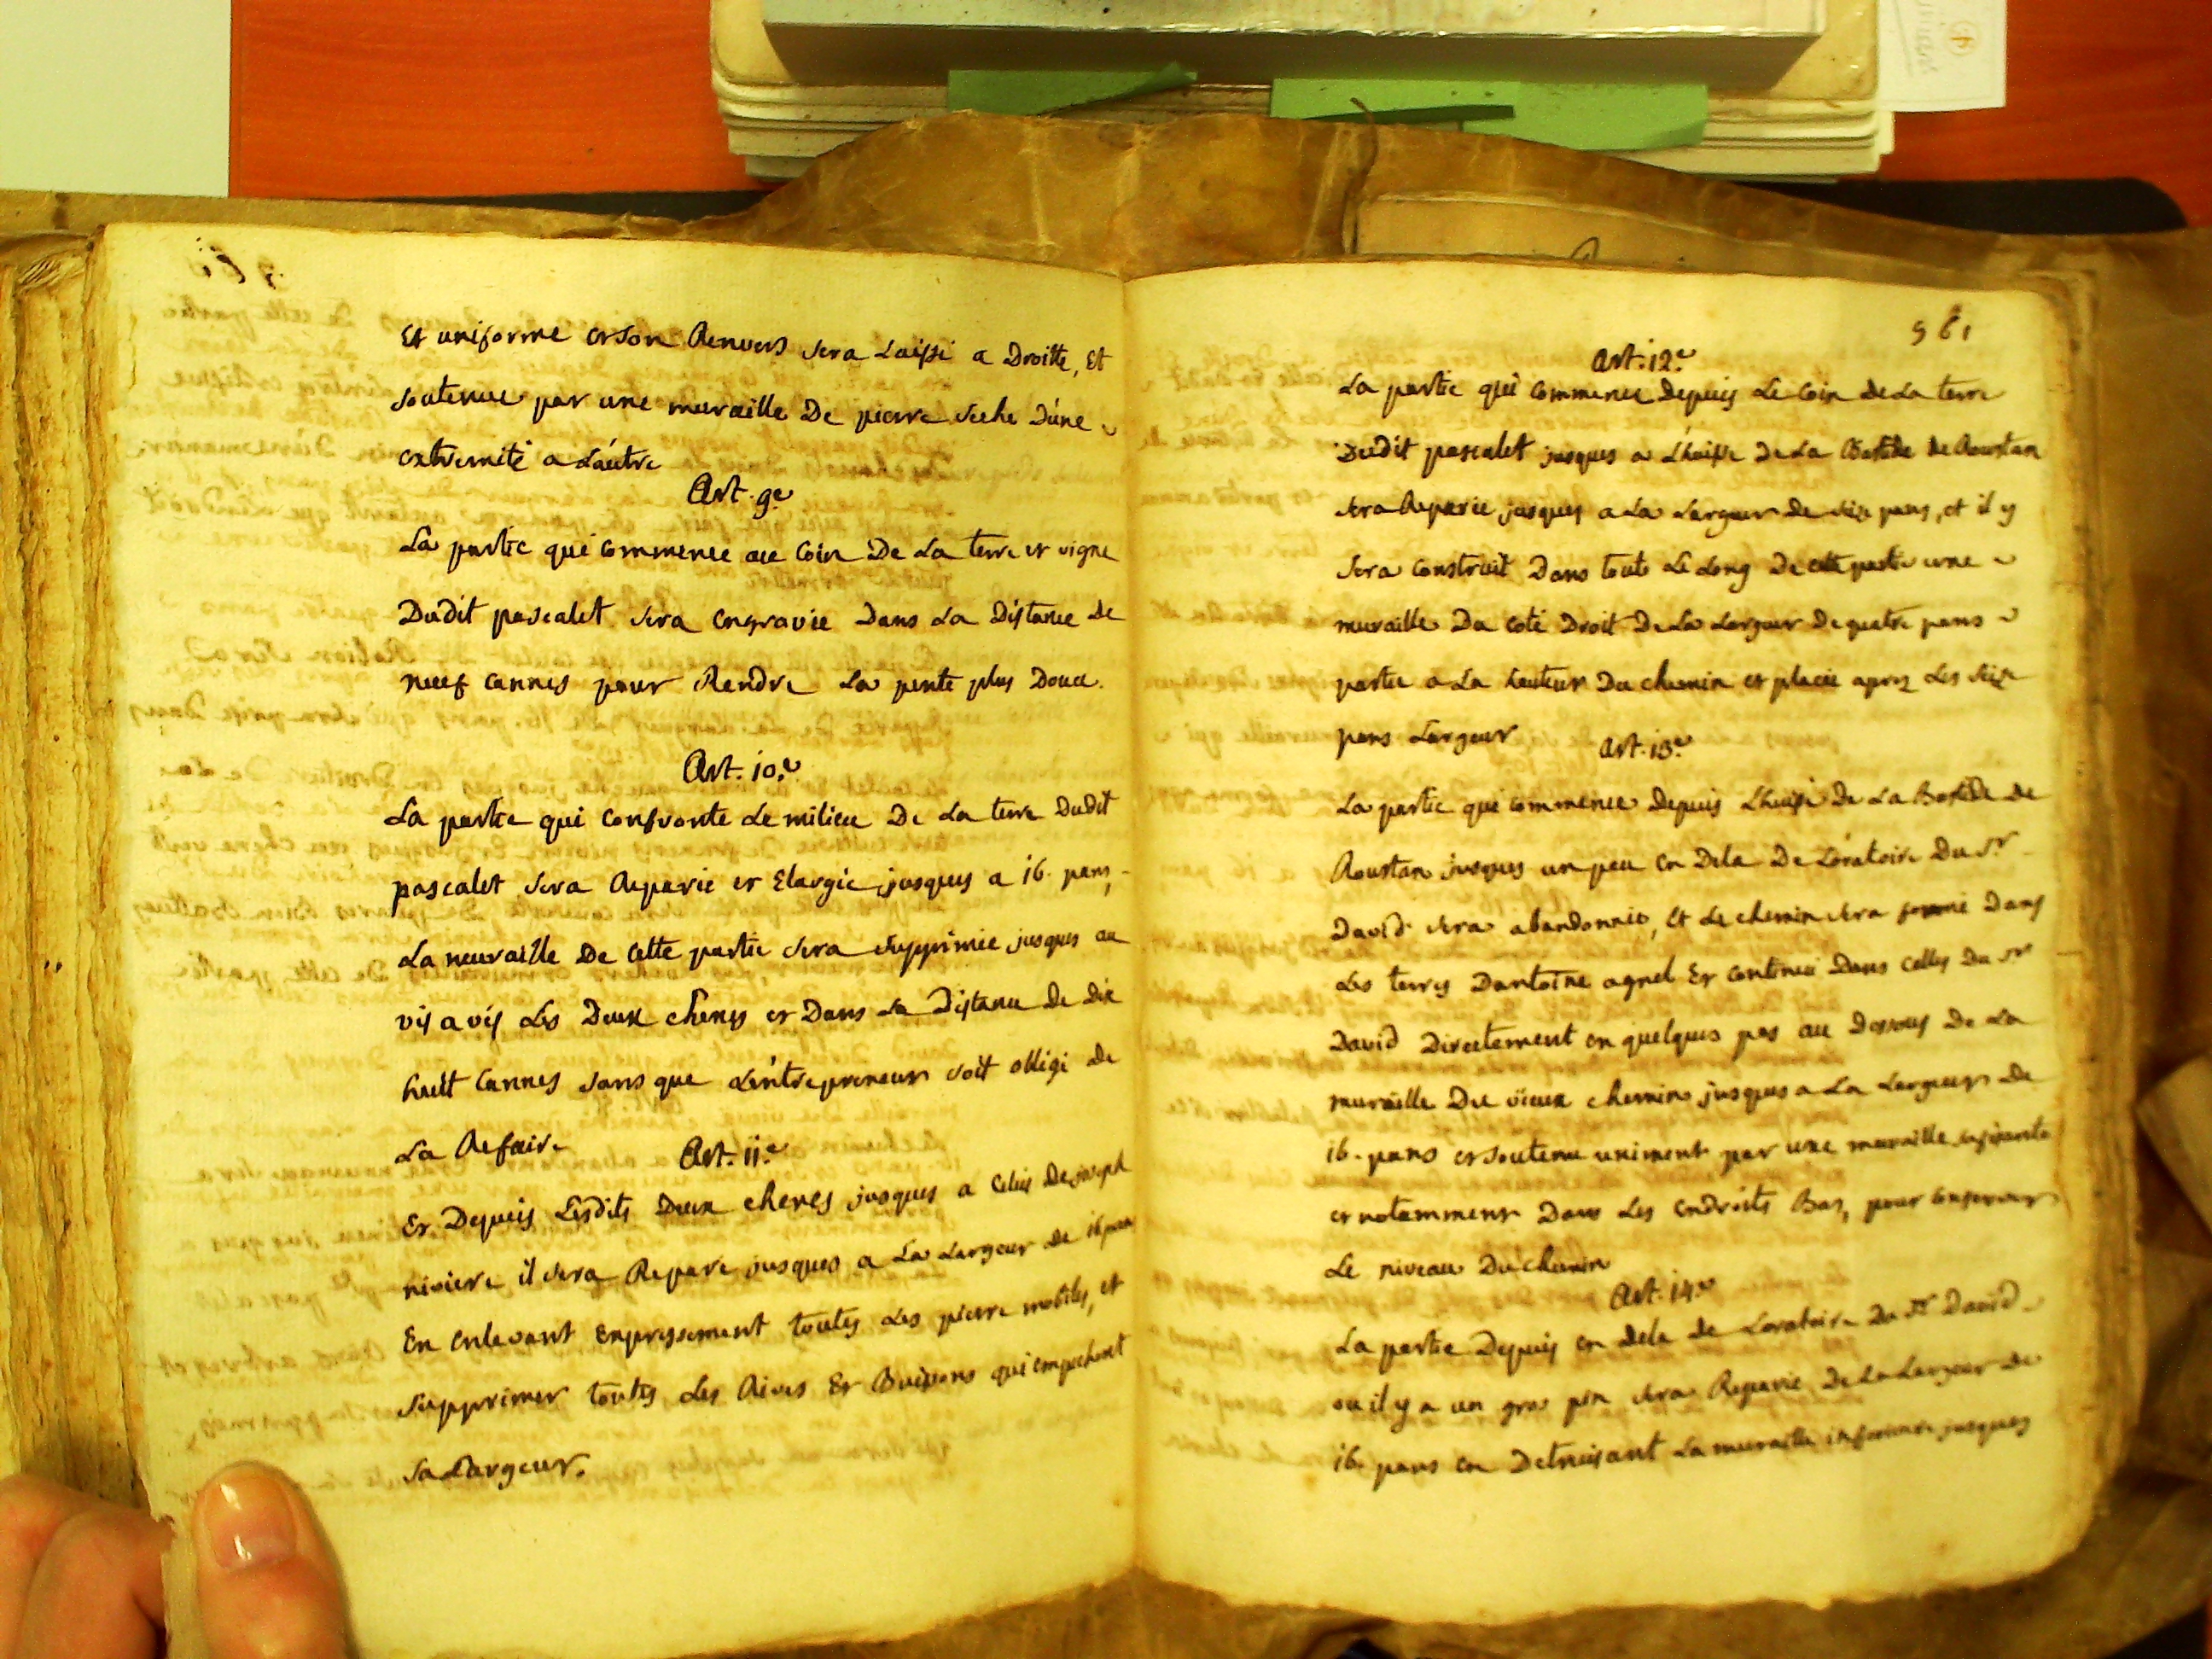 Et uniforme et son Renvers sera Laissé a Droitte, Et
soutenue par une muraille De pierre seche D'une
extremité a L'autre
Art. 9e
La partie qui commence au Coin De La terre et vigne
Dudit pascalet sera engravée Dans La Distance De
neuf cannes pour Rendre La pente plus Douce.
Art. 10.e
La partie qui confronte Le milieu De La terre Dudit
pascalet sera Reparée et Elargie jusques a 16. pans,
La muraille De cette partie sera supprimée jusques au
vis a vis Les Deux chenes et Dans La Distance De dix
huit Cannes sans que L'entrepreneur soit obligé de
La Refaire
Art. 11.e
Et Depuis Lesdits Deux chenes jusques a Celui de joseph
niviere il sera Reparé jusques a La Largeur de 16 pans
En enlevant Expressement toutes Les pierre mobiles, et
supprimer toutes Les Rives Et Buissons qui empechent
sa Largeur.
561
Art. 12.e
La partie qui commence Depuis Le Coin de La terre
Dudit pascalet jusques a L'huisse De La Bastide de Roustan
sera Reparée jusques a La Largeur de seize pans, et il y
sera construit Dans toute Le Long De cette partie une
muraille Du coté Droit De La Largeur De quatre pans
portée a La hauteur Du chemin et placée apres Les seize
pans Largeur
Art. 13.e
La partie qui commence Depuis L'huisse De La Bastide De
Roustan jusques un peu en Dela De L'oratoire Du Sr
David sera abandonnée, Et Le chemin sera formé Dans
Les terres D'antoine agnel Et continué Dans Celles Du Sr
David Directement en quelques pas au Dessous De La
muraille Du vieux chemin jusques a La Largeur De
16. pans et soutenu uniment par une muraille suffisante
et notamment Dans Les endroits Bas, pour conserver
Le niveau Du chemin
Art. 14.e
La partie Depuis en dela de L'oratoire Du Sr David
ou il y a un gros pin sera Reparée De La Largeur De
16. pans en Detruisant La muraille inferieure jusques